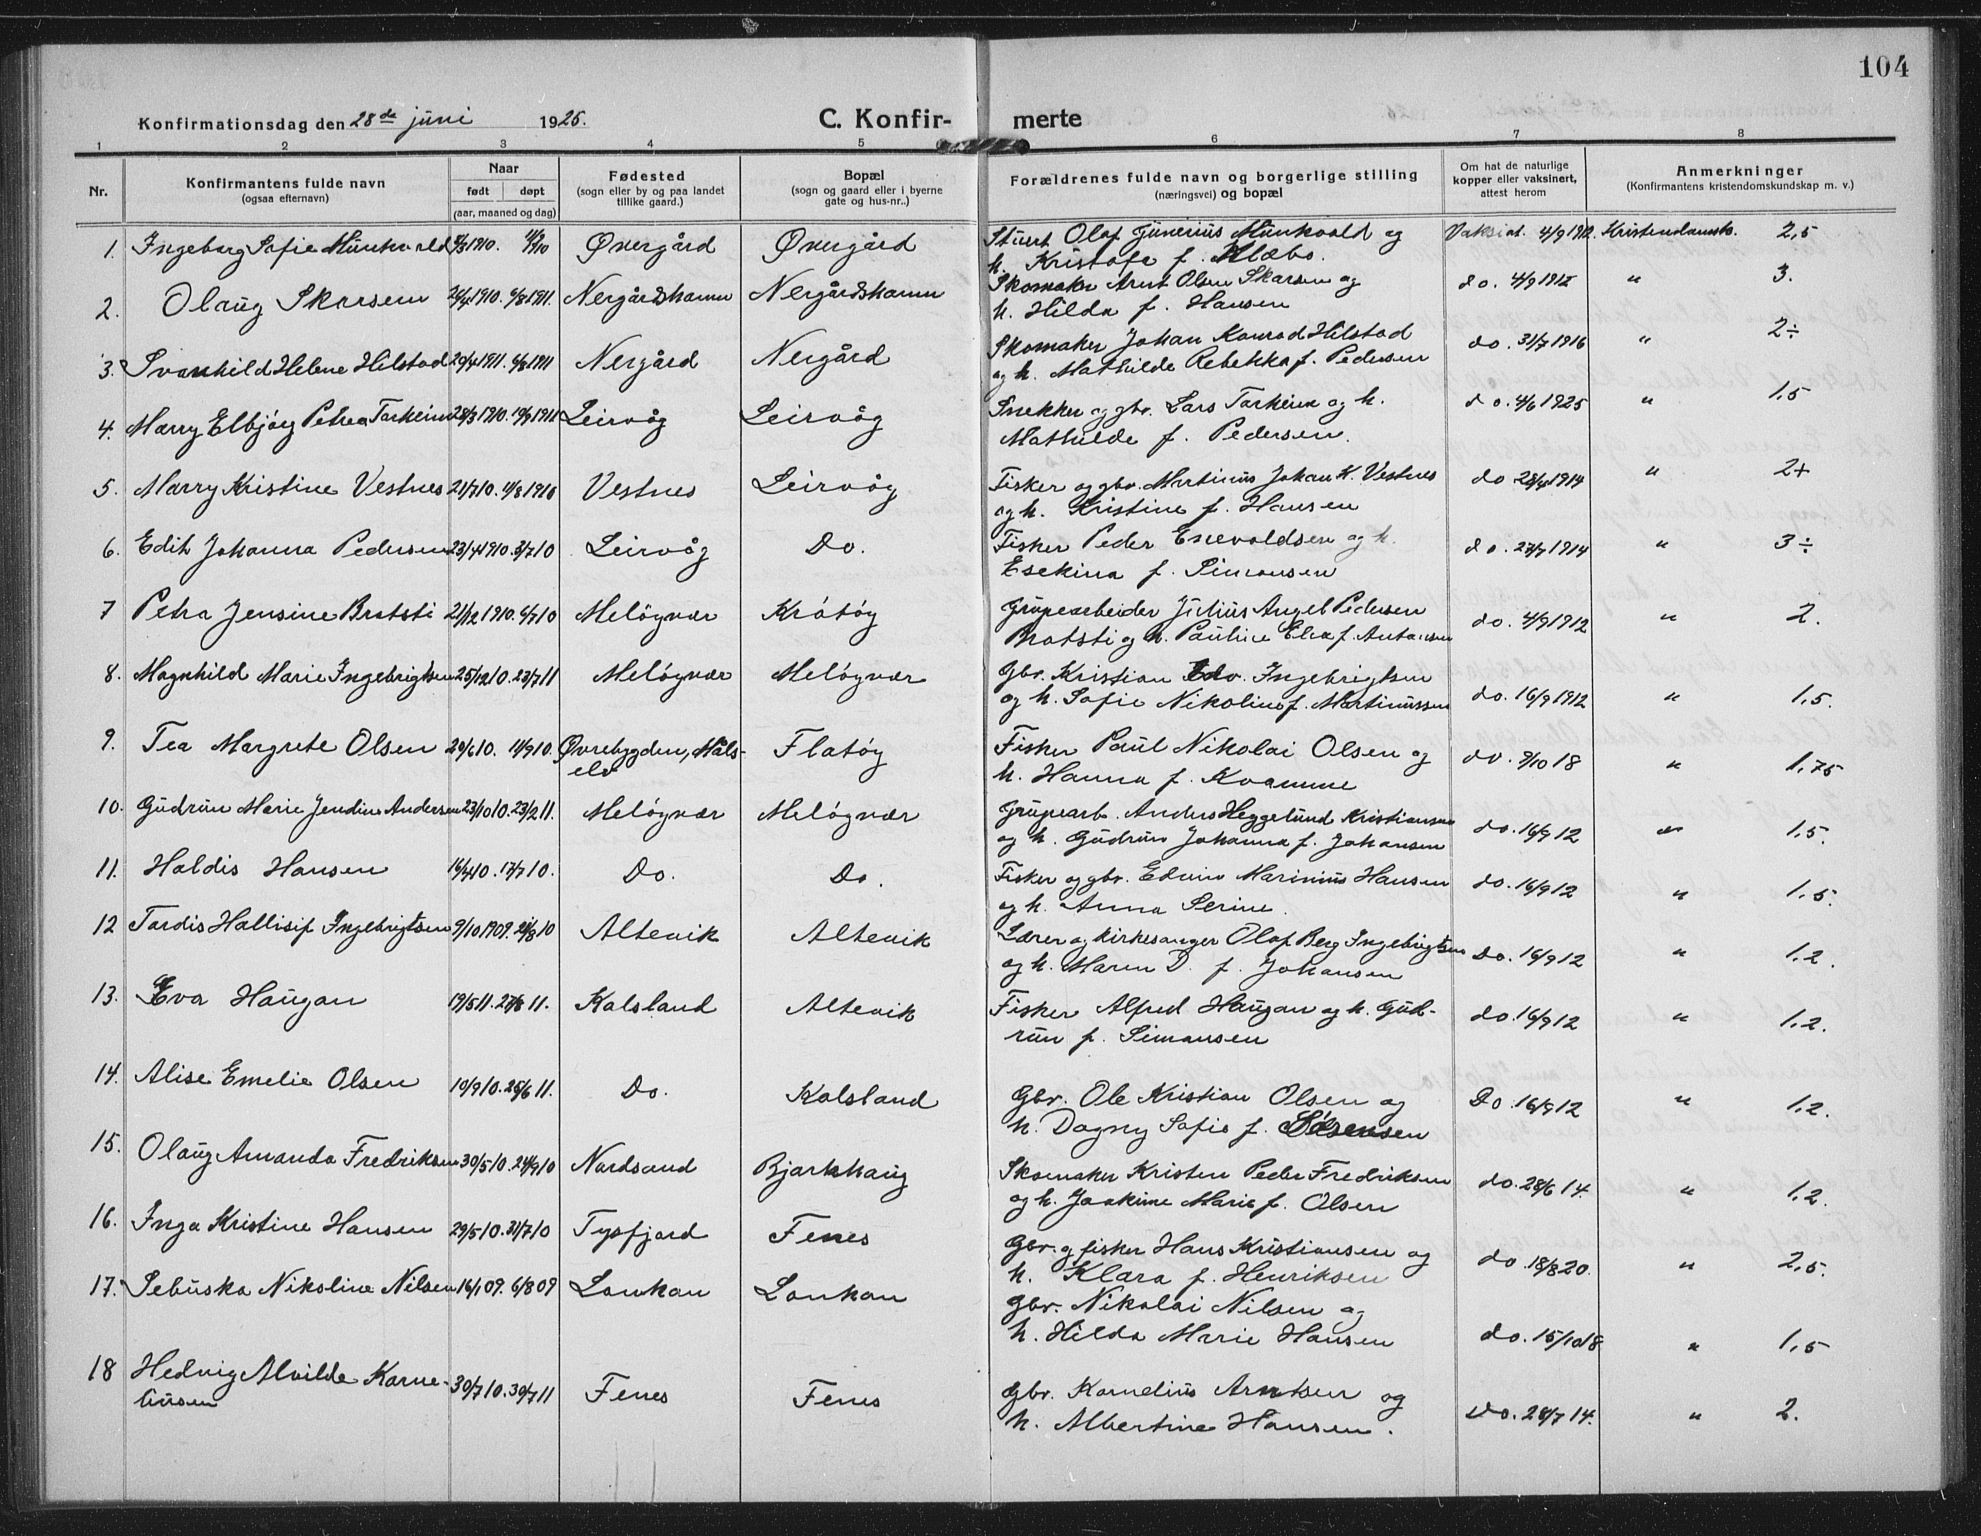 104
Konfirmationsdag den 28de juni 1925. C. Konfirmerte
1 2 3 4 5 6 7 8
Nr. Konfirmantens fulde navn (ogsaa efternavn) Naar født døpt (aar, maaned og dag) Fødested (sogn eller by og paa landet tillike gaard.) Bopæl (sogn og gaard eller i byerne gate og hus-nr..) Forældrenes fulde navn og borgerlige stilling (næringsvei) og bopæl Om hat de naturlige kopper eller vaksinert, attest herom Anmerkninger (Konfirmantens kristendomskundskap m. v.)
1. Ingeborg Sofie Munkvold Øvergård Øvergård Stuert Olaf Junerius Munkvold og h. Kristofa f. Klæbo. Vaksinat. 4/9 1912. Kristendomsk. 2,5
2. Olaug Skarsem 26/4 1910. 6/8 1911. Nergårdshamn Nergårdshamn Skomaker Arnt Olsen Skarsem og h. Hilda f. Hansen do. 4/9 1912 " 3.
3. Svanhild Helene Hilstad 20/4 1911. 6/8 1911 Nergård Nergård Skomaker Johan Konrad Hilstad og h. Mathilde Rebekka f. Pedersen do. 31/7 1916 " 2÷
4. Marry Elbjørg Petrea Torheim 28/3 1910. Leirvåg Leirvåg Snekker og gbr. Lars Torheim og h. Mathilde f. Pedersen. do. 4/6 1925 " 1,5
5. Marry Kristine Vestnes 21/7 10. Vestnes Leirvåg Fisker og gbr. Martinus Johan K. Vestnes og h. Kristine f. Hansen do 28/4 1914 " 2+
6. Edith Johanna Pedersen 23/4 1910. 3/7 10 Leirvåg Do. Fisker Peder Enevoldsen og h. Esekina f. Simonsen do. 27/7 1914 " 3÷
7 Petra Jensine Bratsti 21/12 1910. 6/7 10 Meløyvær Krøtøy Grupearbeider Julius Angel Pedersen Bratsti og h. Pauline Elea f. Antonsen do. 4/9 1912 " 2.
8. Magnhild Marie Ingebrigtsen 25/12 10. 23/7 11 Meløyvær Meløyvær Gbr. Kristian Edv. Ingebrigtsen og h. Sofie Nikoline f. Martinussen do. 16/9 1912 " 1,5.
9. Tea Margrete Olsen 29/6 10. 11/9 10. Øvrebygden, Målselv Flatøy Fisker Paul Nikolai Olsen og h. Hanna f. Kvamme do. 9/10 18 " 1,75
10. Gudrun Marie Jendine Andersen 23/10 10. 23/2 11. Meløyvær Meløyvær Grupearb. Anders Heggelund Kristiansen og h. Gudrun Johanna f. Johansen do. 16/9 12 " 1,5.
11. Haldis Hansen 14/4 10. 17/7 10. Do. Do. Fisker og gbr. Edvin Marinius Hansen og h. Anna Serine. do. 16/9 12 " 1,5.
12 Tordis Hallisif Ingebrigtsen 9/10 1909. 21/8 10 Altevik Altevik Lærer og kirkesanger Olaf Berg Ingebrigtsen og h. Maren D. f. Johansen Do. 16/9 12 " 1,2.
13. Eva Haugan 19/5 11. 27/8 11. Kalsland Altevik Fisker Alfred Haugan og h. Gudrun f. Simonsen do. 16/9 12 " 1,2.
14. Alise Emelie Olsen 10/9 10. 25/6 11. Do. Kalsland Gbr. Ole Kristian Olsen og h. Dagny Sofie f. Sørensen Do. 16/9 12 " 1,2.
15. Olaug Amanda Fredriksen 30/5 10. 24/9 10 Nordsand Bjarkhaug Skomaker Kristen Peder Fredriksen og h. Joakime Marie f. Olsen do. 28/6 14. " 1,2.
16. Inga Kristine Hansen 29/5 10. 31/7 10 Tysfjord Fenes Gbr. og fisker Hans Kristiansen og h. Klara f. Henriksen do 18/8 20. " 2,5.
17. Sebuska Nikoline Nilsen 16/1 09. 6/8 09 Lonkan Lonkan Gbr. Nikolai Nilsen og h. Hilda Marie Hansen do. 15/10 18 " 1,5
18 Hedvig Alvilde Korneliusen 30/7 10. 30/7 11 Fenes Fenes Gbr. Kornelius Arntsen og h. Albertine Hansen. Do. 28/7 14. " 2.